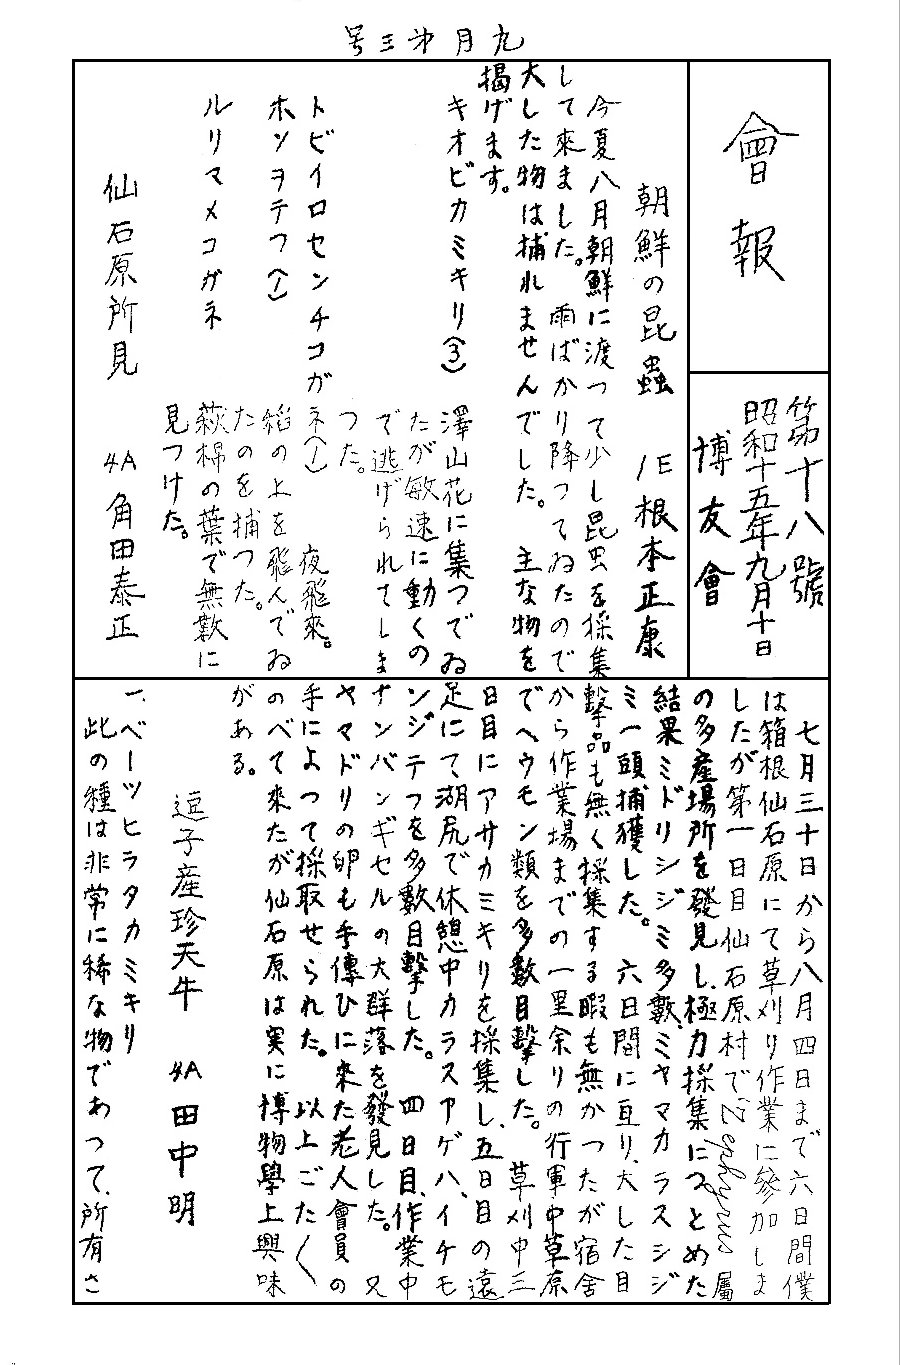 九月第三号
會報
第十八號
昭和十五年九月十日
博友會
朝鮮の昆蟲 1E根本正康
今夏八月朝鮮に渡つて少し昆虫を採集
して來ました。雨ばかり降つてゐたので
大した物は捕れませんでした。主な物を
揭げます。
キオビカミキリ(3) 澤山花に集つてゐ
たが敏速に動くの
で逃げられてしま
つた。
トビイロセンチコガネ(1) 夜飛來。
ホソヲテフ(1) 稻の上を飛んでゐ
たのを捕つた。
ルリマメコガネ 萩棉の葉で無數に
見つけた。
仙石原所見 4A 角田泰正
七月三十日から八月四日まで六日間僕
は箱根仙石原にて草刈り作業に參加しま
したが第一日目仙石原村でZephyrus屬
の多産場所を發見し、極力採集につとめた
結果ミドリシジミ多數、ミヤマカラスシジ
ミ一頭捕獲した。六日間に亙り、大した目
擊品も無く採集する暇も無かつたが宿舍
から作業場までの一里余りの行軍中草原
でヘウモン類を多數目擊した。草刈中三
日目にアサカミキリを採集し、五日目の遠
足にて湖尻で休憩中カラスアゲハ、イチモ
ンジテフを多數目擊した。四日目、作業中
ナンバンギセルの大群落を發見した。又
ヤマドリの卵も手傳ひに來た老人會員の
手によつて採取せられた。以上ごた〱
のべて來たが仙石原は実に博物學上興味
がある。
逗子産珍天牛 4A 田中明
一、ベーツヒラタカミキリ
此の種は非常に稀な物であつて、所有さ